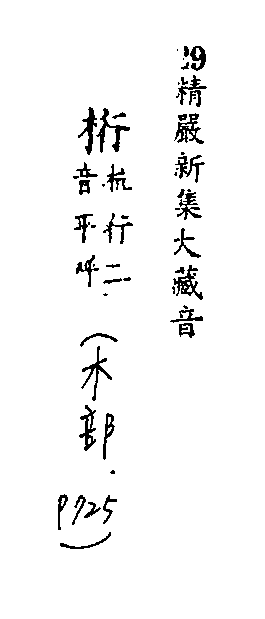 29精嚴新集大藏音
桁 杭行二音平呼(木部.P725)